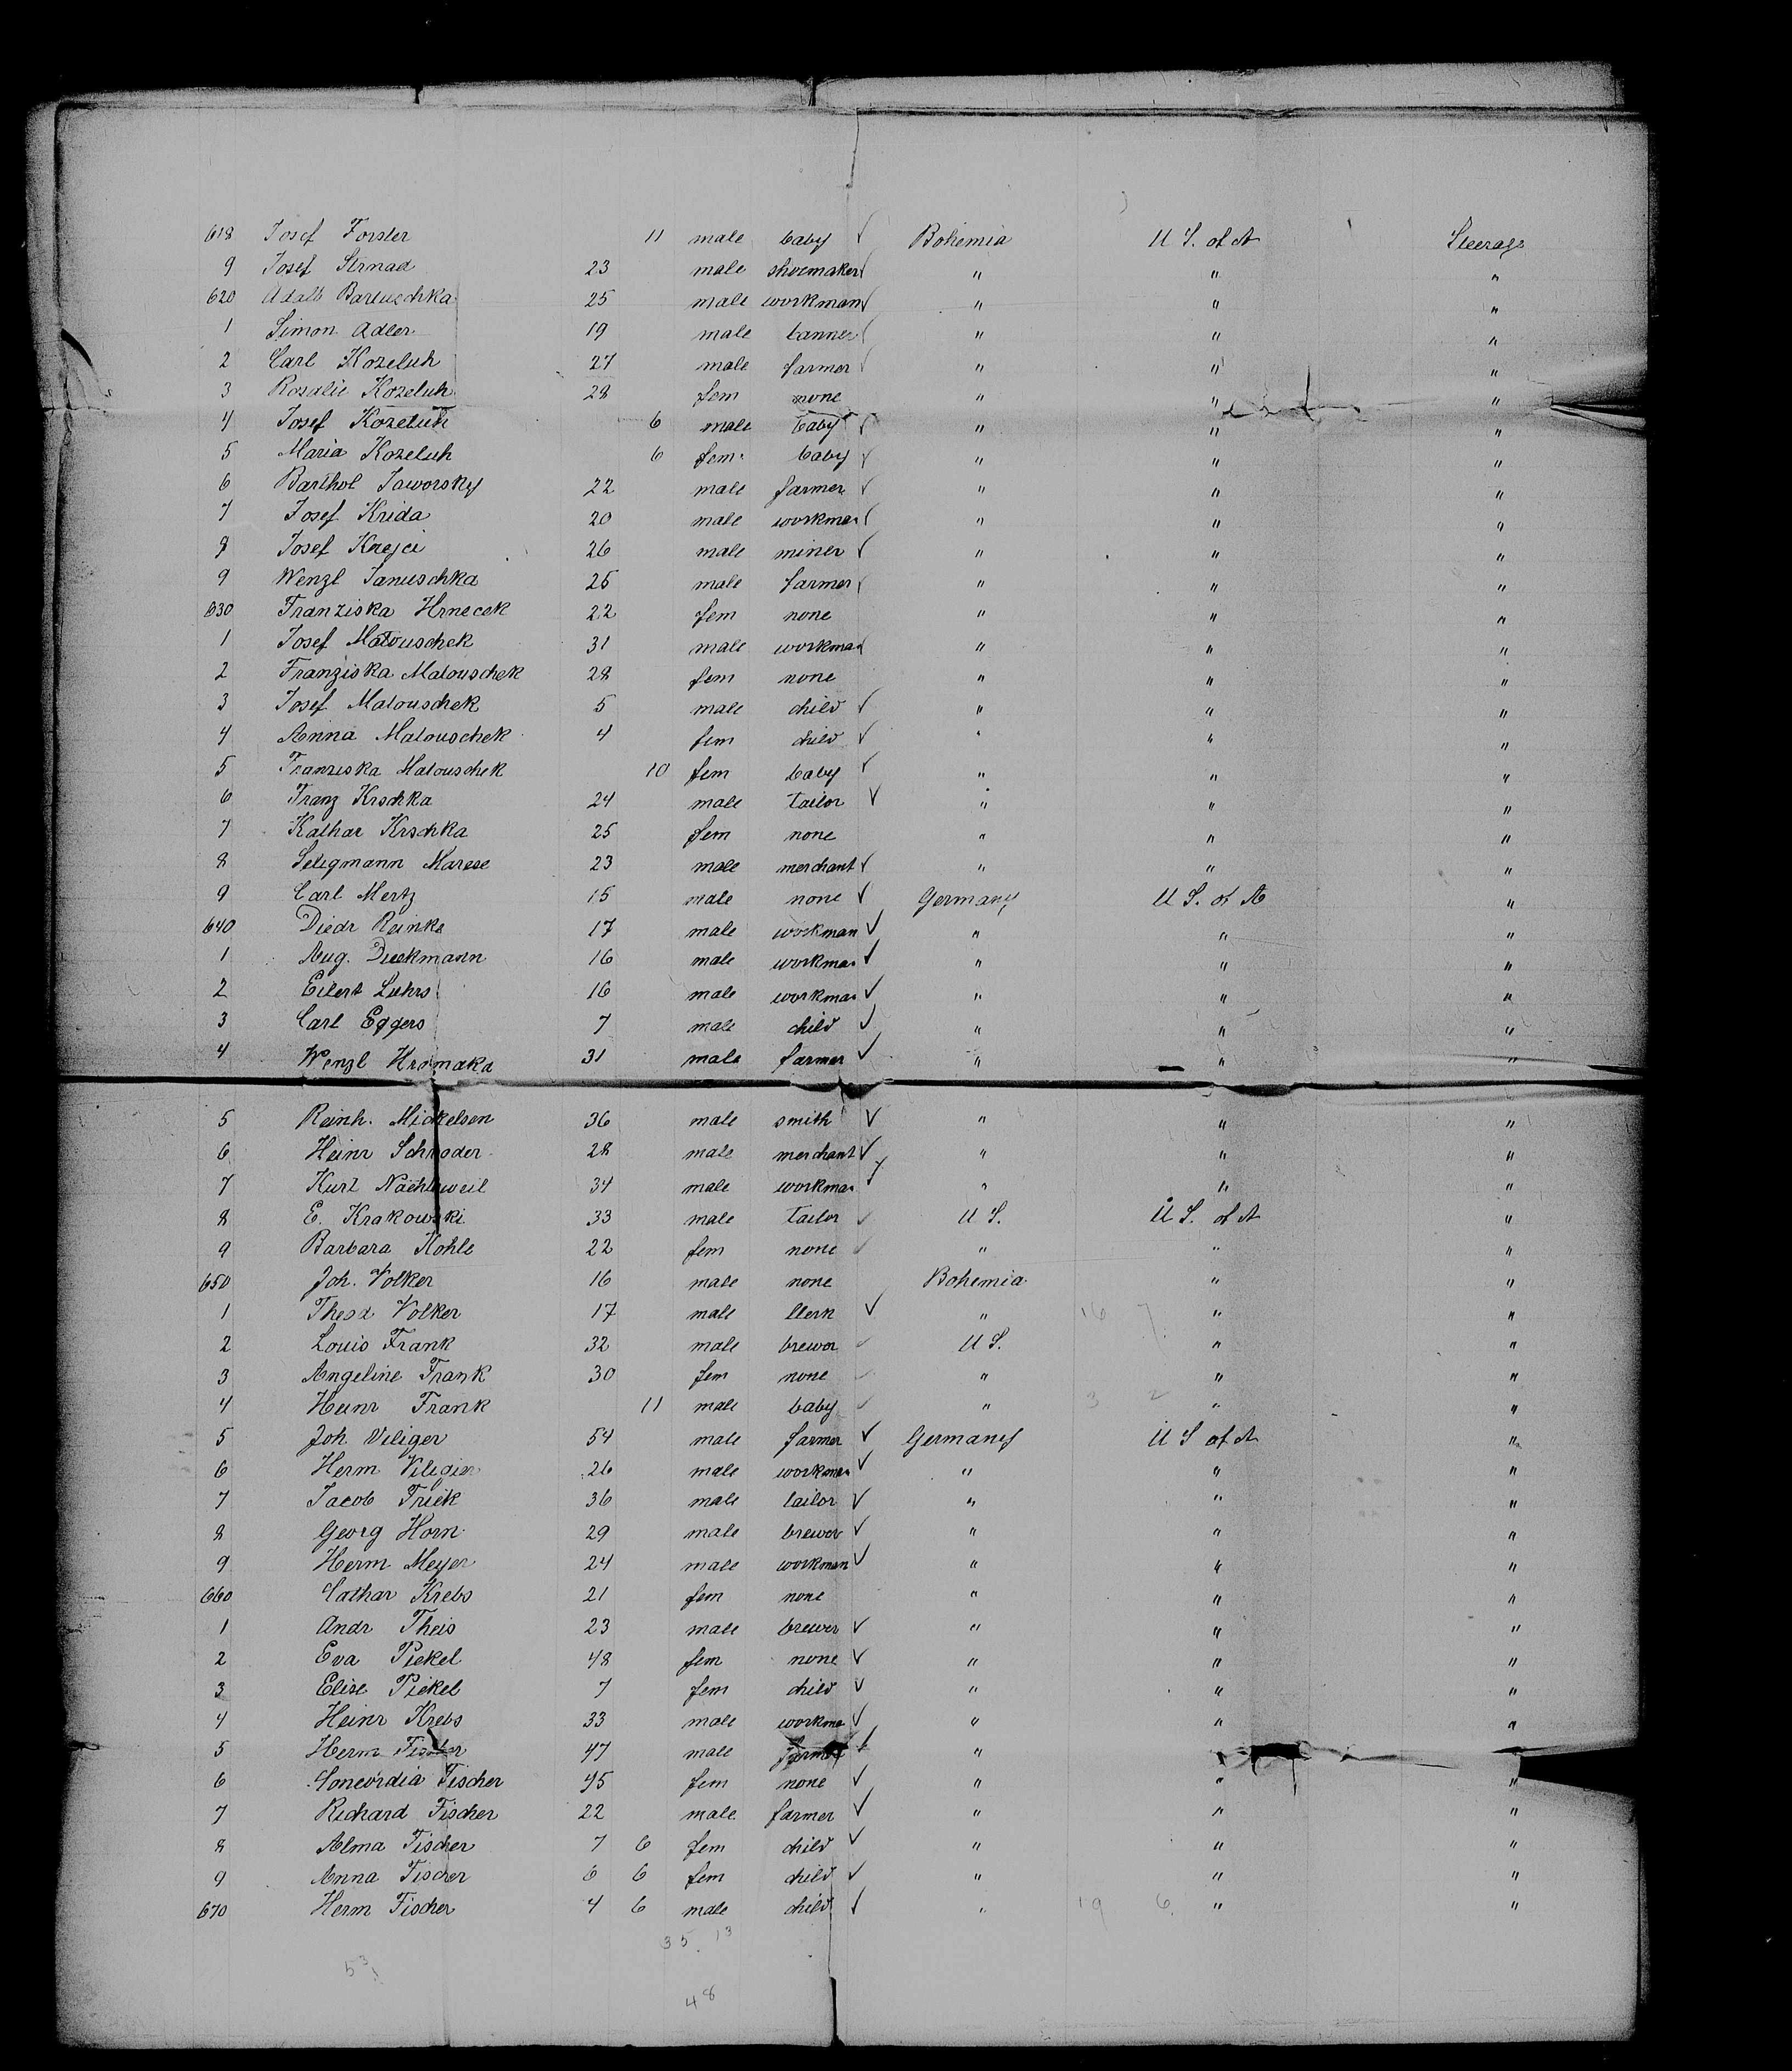 618 Josef Forster 11 male baby Bohemia U S. of A Steerage
9 Josef Strnad 23 male shoemaker " " "
620 Adalb Bartuschka 25 male workman " " "
1 Simon Adler 19 male tanner " " "
2 Carl Kozeluh 27 male farmer " " "
3 Rosalie Kozeluh 28 fem none " " "
4 Josef Kozeluh 6 male baby " " "
5 Maria Kozeluh 6 fem. baby " " "
6 Barthol Jaworsky 22 male farmer " " "
7 Josef Krida 20 male workman " " "
8 Josef Krejci 26 male miner " " "
9 Wenzl Januschka 25 male farmer " " "
630 Franziska Hrnecek 22 fem none " " "
1 Josef Matouschek 31 male workman " " "
2 Franziska Matouschek 28 fem none " " "
3 Josef Matouschek 5 male child " " "
4 Anna Matouschek 4 fem child " " "
5 Franziska Matouschek 10 fem baby " " "
6 Franz Krschka 24 male tailor " " "
7 Kathar Krschka 25 fem none " " "
8 Seligmann 23 male merchant " " "
9 Carl Mertz 15 male none Germany U S. of A "
640 Diedr Reinke 17 male workman " " "
1 Aug. Dieckmann 16 male workman " " "
2 Eilert Luhrs 16 male workman " " "
3 Carl Eggers 7 male child " " "
4 Wenzl Hromaka 31 male farmer " " "
5 Reinh. Mickelsen 36 male smith " " "
6 Heinr Schroder 28 male merchant " " "
7 Kurt 34 male workman " " "
8 E. Krakowski 33 male tailor U S. U S. of A "
9 Barbara Kohle 22 fem none " " "
650 Joh. Volker 16 male none Bohemia " "
1 Theod Volker 17 male clerk " 16 7 " "
2 Louis Frank 32 male brewer U S. " "
3 Angeline Frank 30 fem none " " "
4 Heinr Frank 11 male baby " 3 2 " "
5 Joh Viliger 54 male farmer Germany U S of A "
6 Herm Viligier 26 male workman " " "
7 Jacob Frick 36 male tailor " " "
8 Georg Horn 29 male brewer " " "
9 Herm Meyer 24 male workman " " "
660 Cathar Krebs 21 fem none " " "
1 Andr Theis 23 male brewer " " "
2 Eva Pickel 48 fem none " " "
3 Elise Pickel 7 fem child " " "
4 Heinr Krebs 33 male workman " " "
5 Herm Fischer 47 male farmer " " "
6 Concordia Fischer 45 fem none " " "
7 Richard Fischer 22 male farmer " " "
8 Alma Fischer 7 6 fem child " " "
9 Anna Fischer 6 6 fem child " " "
670 Herm Fischer 4 6 male child " 19 6 " "
35. 13
53
48